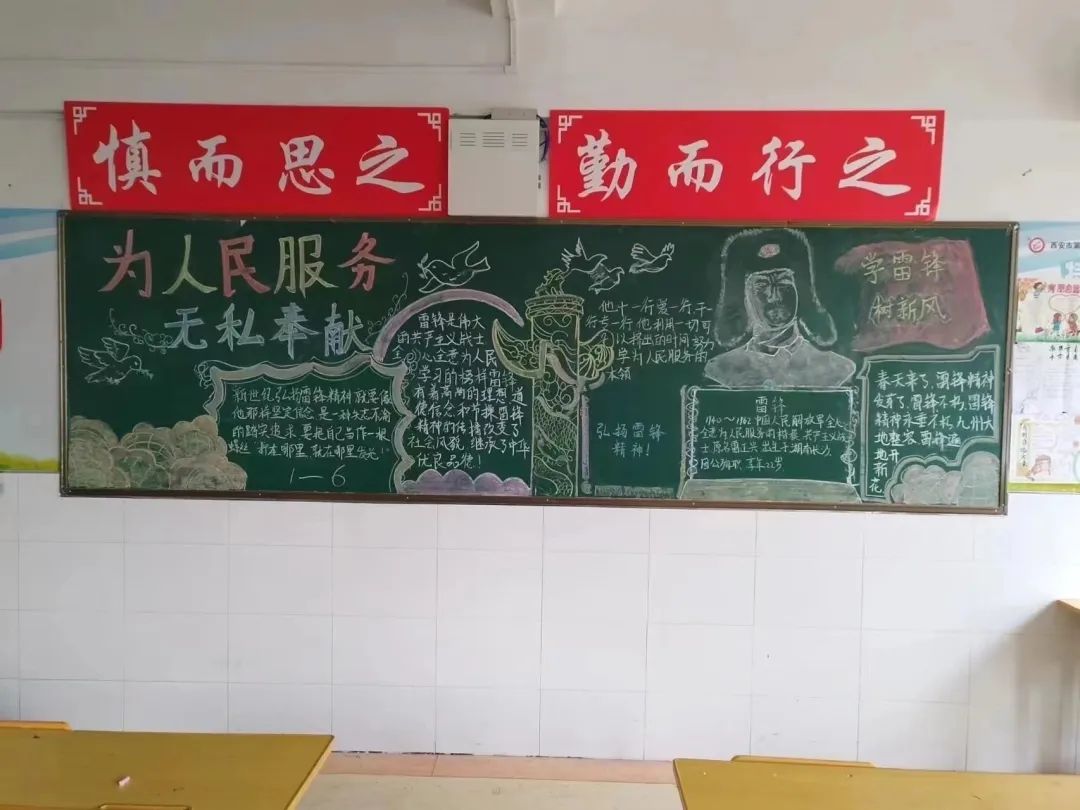 慎而思之
勤而行之
为人民服务
无私奉献
新世纪弘扬雷锋精神就要像
他那样坚定信念 是一种矢志不渝
的踏实追求 要把自己当作一根
螺丝 钉在哪里 就在哪里发光!
1—6
雷锋是伟大
的共产主义战士
全心全意为人民
学习的榜样雷锋
有着高尚的理想道
使信念和节操雷锋
精神的传播改变了
社会风貌,继承了中华
优良品德!
他干一行爱一行干
行专一行他利用一切可
以挤出的时间努力
学为人民服务的
本领
弘扬雷锋
精神!
雷锋
1940~1962中国人民解放军全心
全意为人民服务的楷模 共产主义战
士 原名雷正兴 出生于湖南长沙
因公殉职 享年22岁
学雷锋
树新风
春天来了,雷锋精神
发有了,雷锋不朽,雷锋
精神永垂不朽,九州大
地整容 雷锋遍
地开
新
花
西安市第